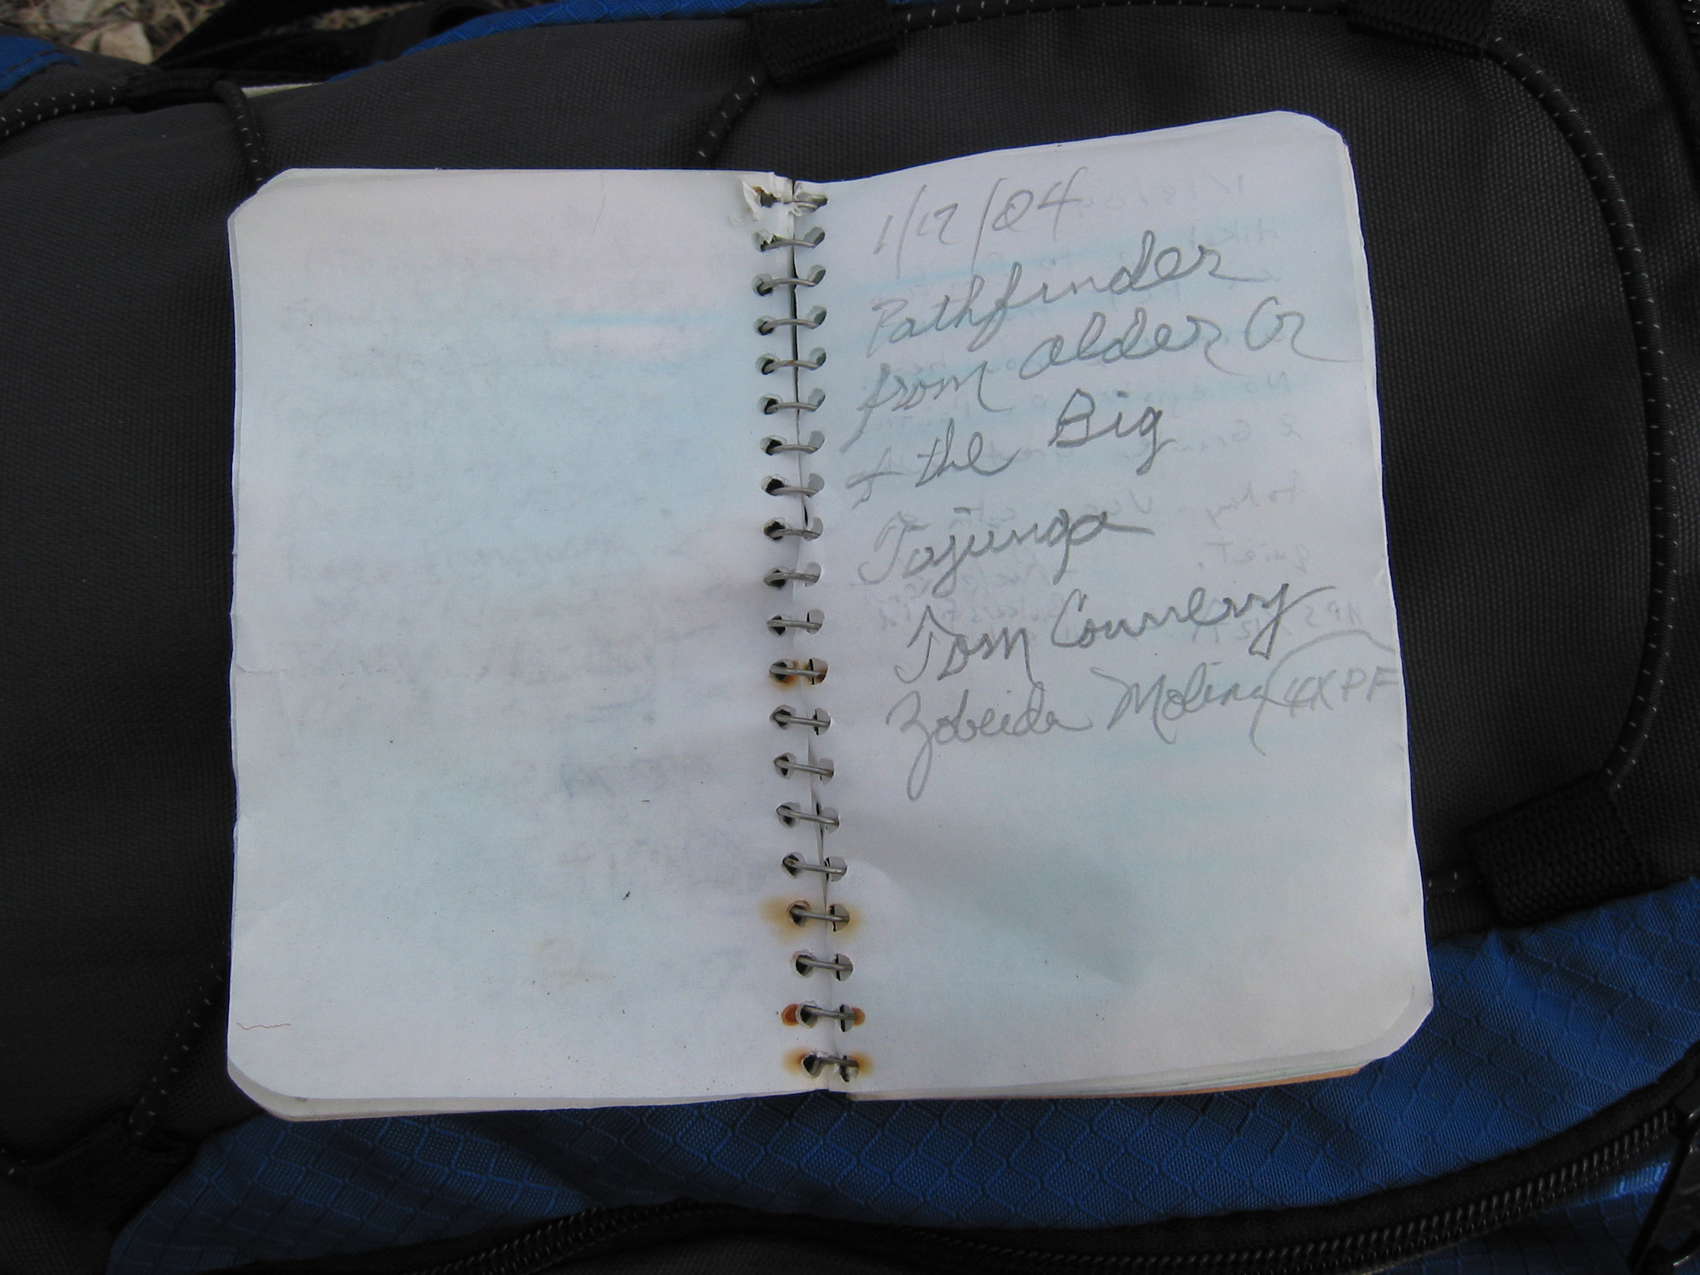 1/12/04
Pathfinder
from alder Cr
+ the Big
Tojunga
Tom Connery
Zobeida Molina (4XPF